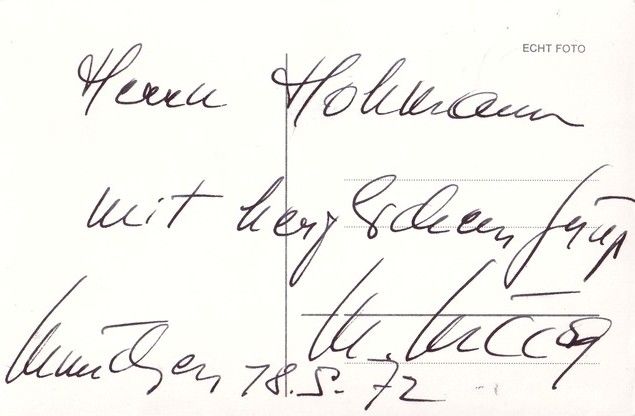 ECHT FOTO
Herrn Hohmann
mit herzlichem Gruß
München 18.5.72